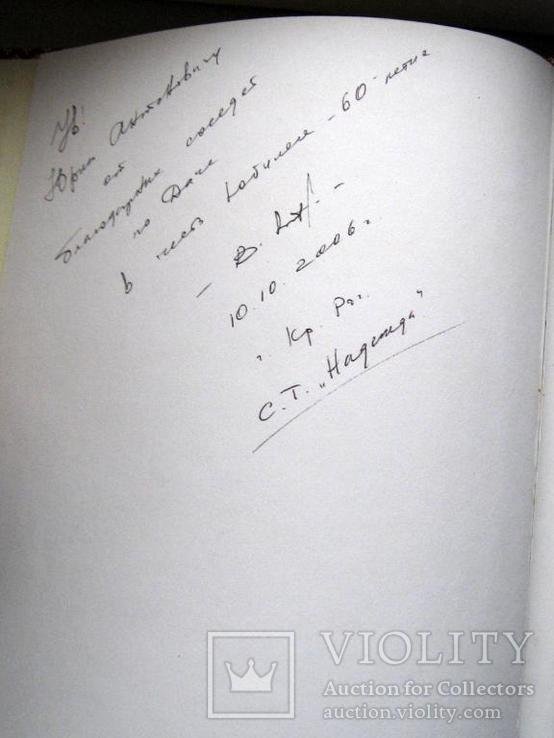 Ув!
Юрию Антоновичу
от
благодарных соседей
по Даче
в честь Юбилея - 60-летия
10.10.2006г.
г. Кр. Рог.
С.Т. „Надежда"
VIOLITY
Auction for Collectors
auction.violity.com